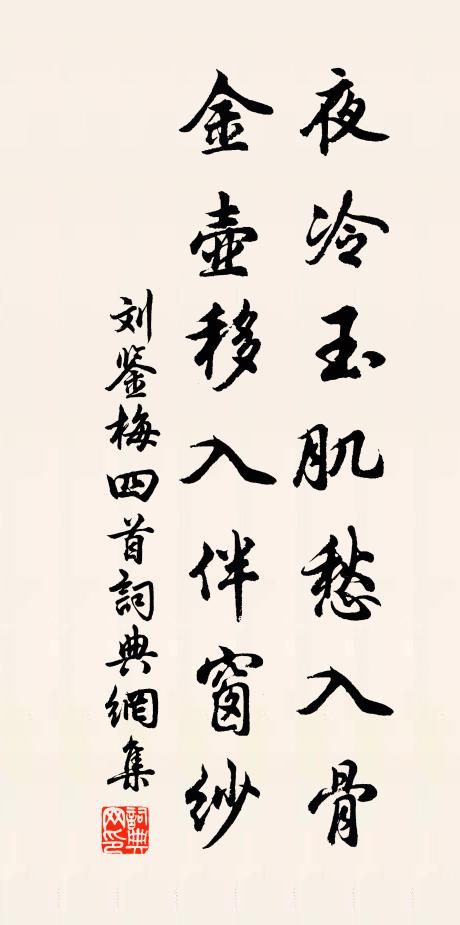 夜冷玉肌愁入骨
金壺移入伴窗紗
刘鉴梅四首詞典網集
詞典網印